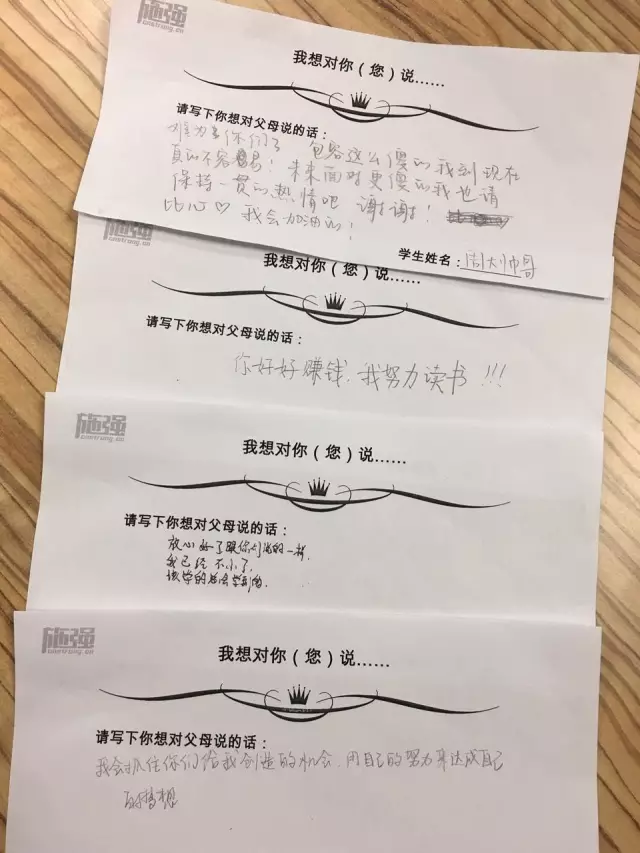 施强
我想对你（您）说……
请写下你想对父母说的话：
难为了你们了 包容这么傻的我到现在
真的不容易！未来面对更傻的我也请
保持一贯的热情吧 谢谢！
比心♡ 我会加油的！
学生姓名：周大帅哥
我想对你（您）说……
请写下你想对父母说的话：
你好好赚钱，我努力读书!!!
施强
我想对你（您）说……
请写下你想对父母说的话：
放心好了跟你们说的一样，
我已经不小了，
该学的总会学到的
施强
我想对你（您）说……
请写下你想对父母说的话：
我会抓住你们给我创造的机会，用自己的努力来达成自己
的梦想